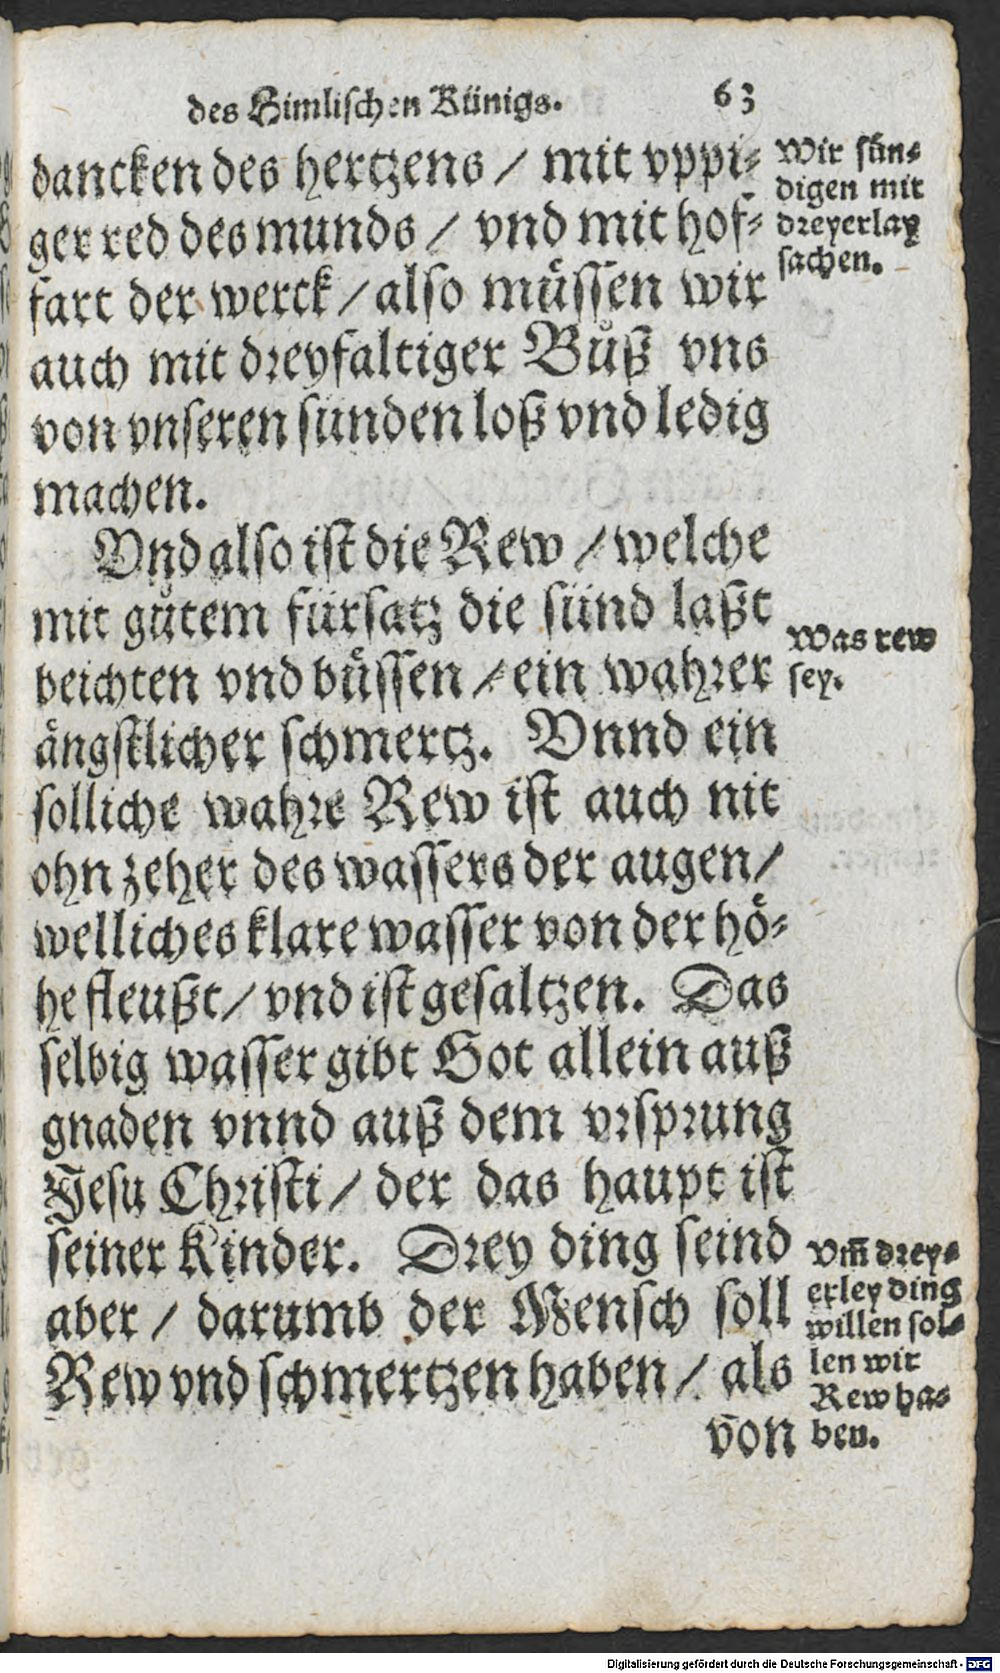 des Himlischen Künigs. 63
dancken des hertzens / mit vppi-
ger red des munds / vnd mit hof-
fart der werck / also müssen wir
auch mit dreyfaltiger Bůß vns
von vnseren sünden loß vnd ledig
machen.
Wir sün-
digen mit
dreyerlay
sachen.
Vnd also ist die Rew / welche
mit gůtem fürsatz die sünd laßt
beichten vnd büssen / ein wahrer
ängstlicher schmertz. Vnnd ein
solliche wahre Rew ist auch nit
ohn zeher des wassers der augen /
welliches klare wasser von der hö-
he fleußt / vnd ist gesaltzen. Das
selbig wasser gibt Got allein auß
gnaden vnnd auß dem vrsprung
Jesu Christi / der das haupt ist
seiner Kinder. Drey ding seind
aber / darumb der Mensch soll
Rew vnd schmertzen haben / als
von
Was rew
sey.
Vm̄ drey-
erley ding
willen sol-
len wir
Rew ha-
ben.
Digitalisierung gefördert durch die Deutsche Forschungsgemeinschaft - DFG